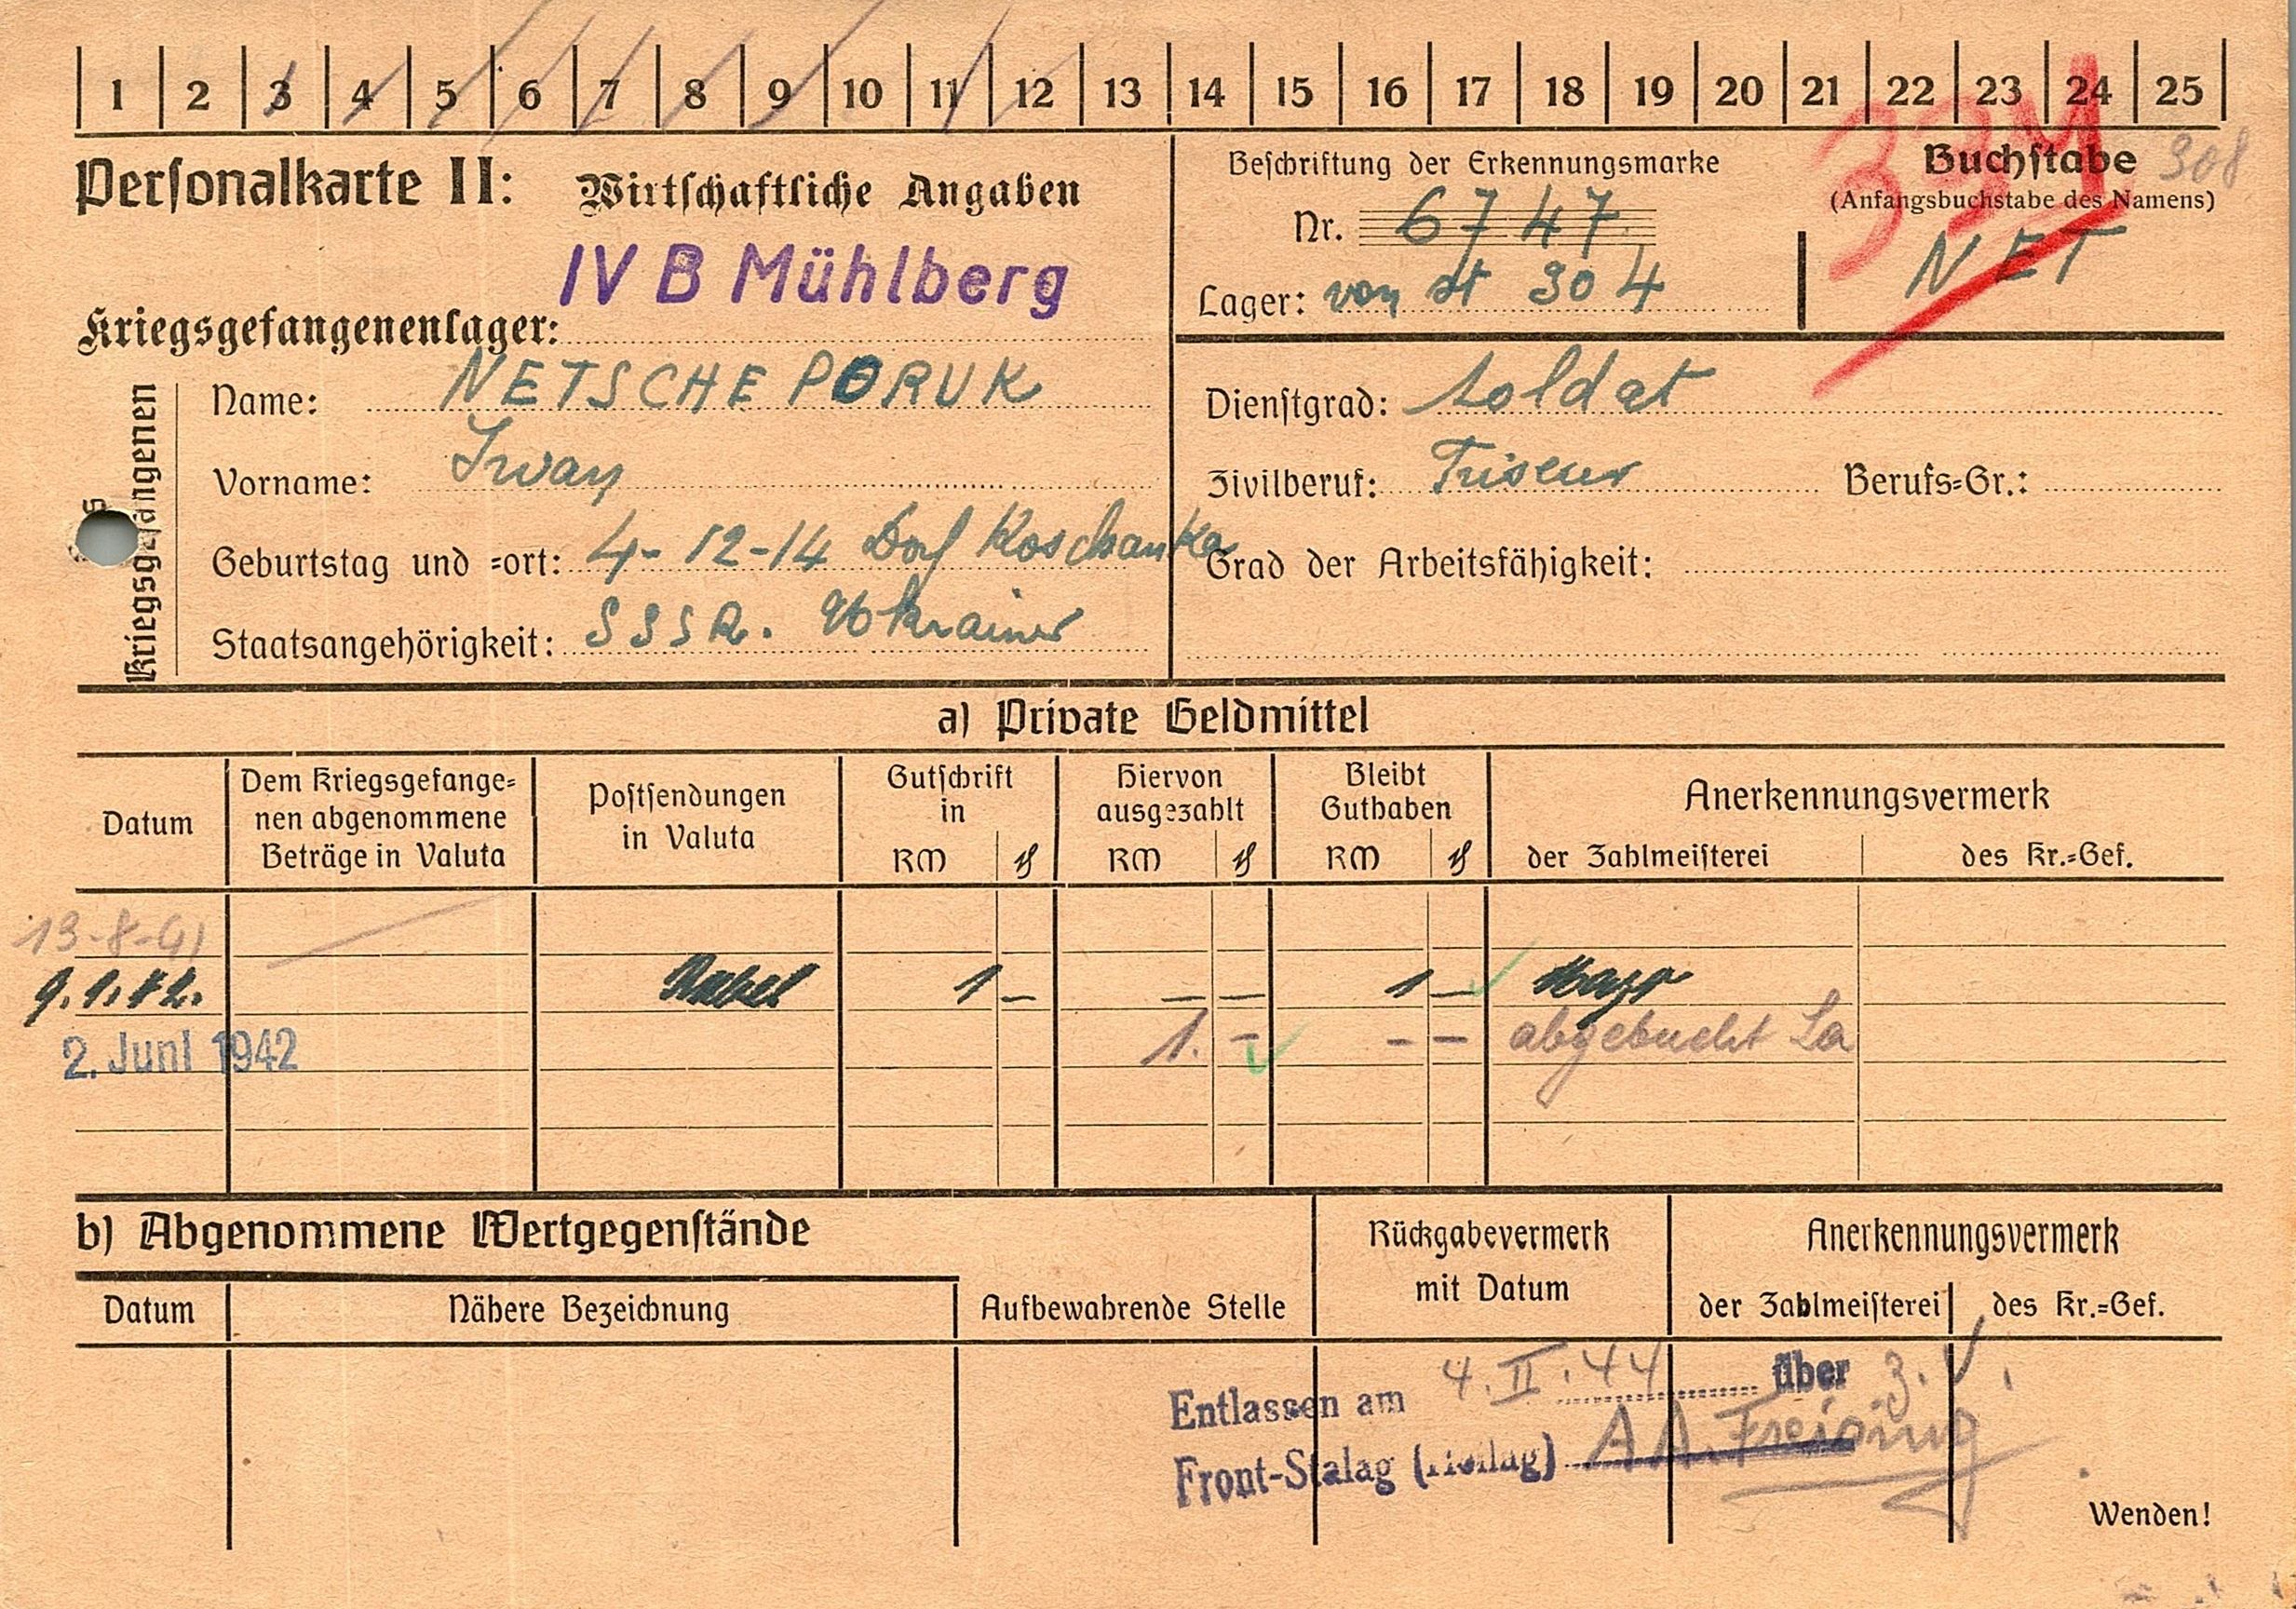 1 2 3 4 5 6 7 8 9 10 11 12 13 14 15 16 17 18 19 20 21 22 23 24 25
Personalkarte II: Wirtschaftliche Angaben
IV B Mühlberg
Kriegsgefangenenlager:
Beschriftung der Erkennungsmarke
Nr. 6747
Lager: von st 304
Buchstabe 308
(Anfangsbuchstabe des Namens)
NET
Kriegsgefangenen
Name: NETSCHEPORUK
Vorname: Iwan
Geburtstag und =ort: 4-12-14 Dorf Koschanka
Staatsangehörigkeit: SSSR. Ukrainer
Dienstgrad: Soldat
Zivilberuf: Friseur Berufs=Gr.:
Grad der Arbeitsfähigkeit:
a) Private Geldmittel
Datum
Dem Kriegsgefange=
nen abgenommene
Beträge in Valuta
Postsendungen
in Valuta
Gutschrift
in
RM ₰
Hiervon
ausgezahlt
RM ₰
Bleibt
Guthaben
RM ₰
Anerkennungsvermerk
der Zahlmeisterei des Kr.=Gef.
13-8-41
9.1.42. 1 — — — 1 —
2. Juni 1942 1. — - — abgebucht La
b) Abgenommene Wertgegenstände
Datum Nähere Bezeichnung Aufbewahrende Stelle
Rückgabevermerk
mit Datum
Anerkennungsvermerk
der Zahlmeisterei des Kr.=Gef.
Entlassen am 4.II.44 über
Front-Stalag (Heilag) AA. Freising
Wenden!